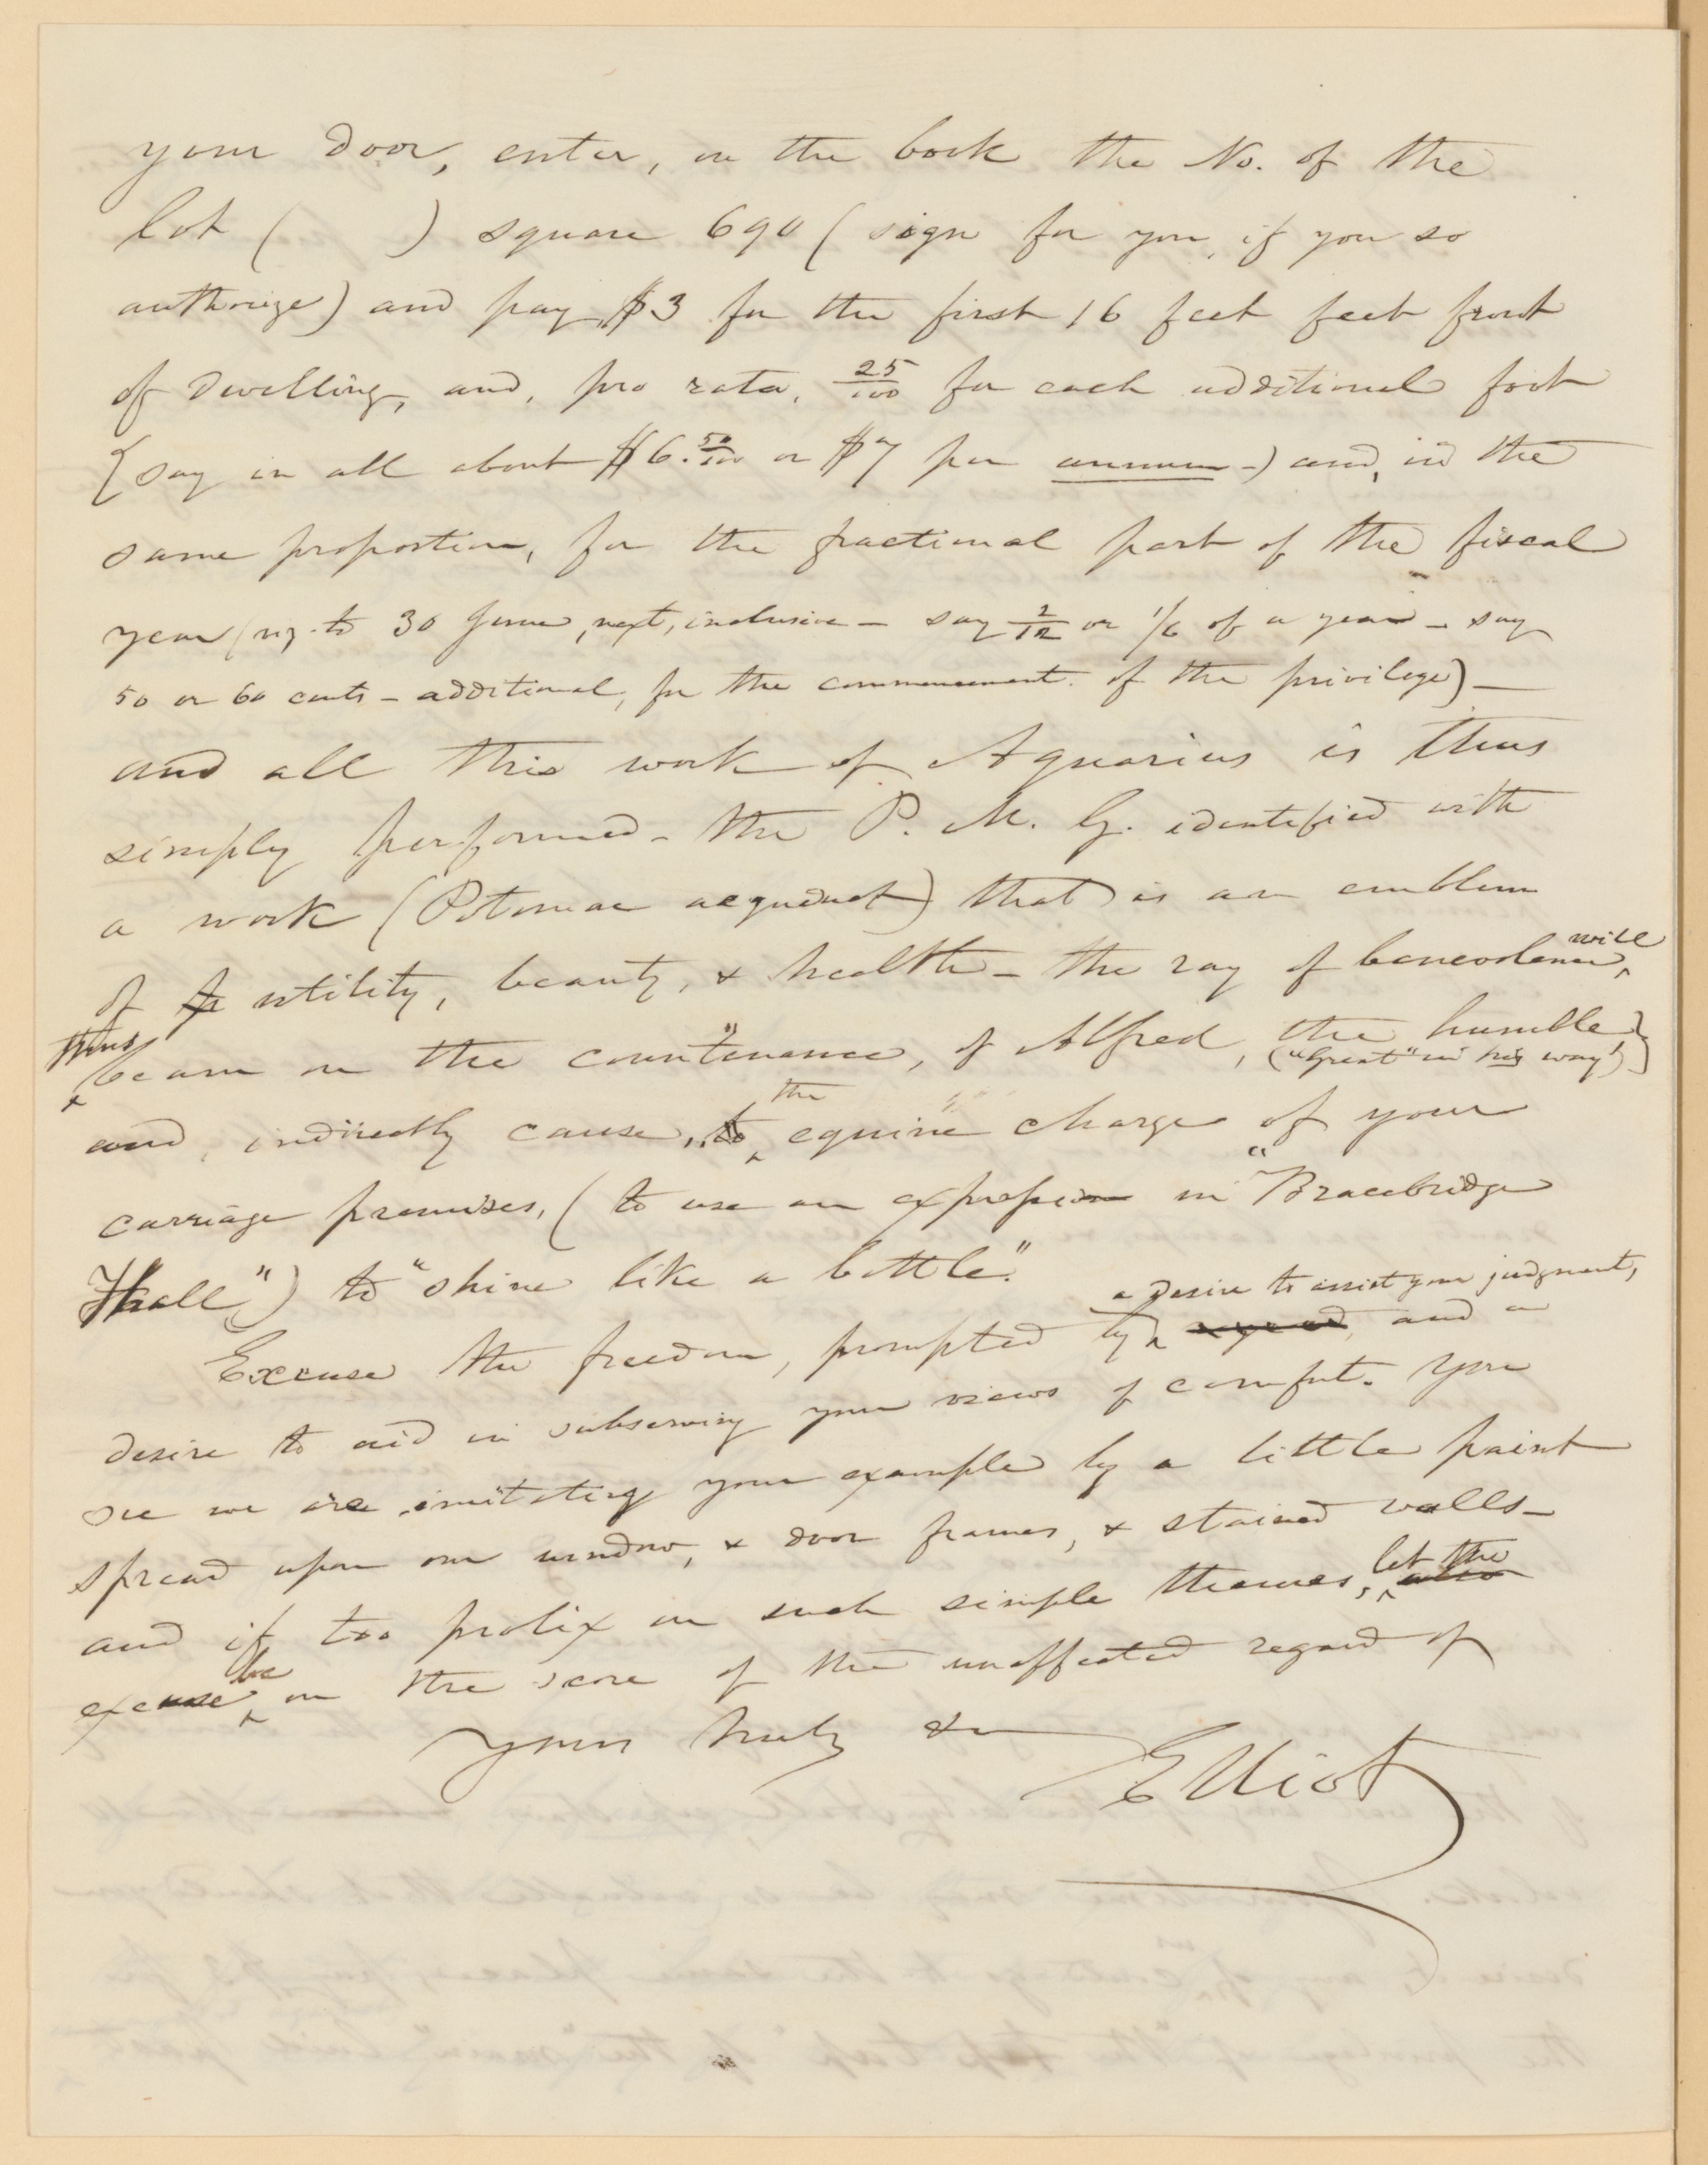 your door, enter, on the book the No. of the
lot ( ) square 690 (sign for you, if you so
authorize) and pay $3 for the first 16 feet feet front
of dwelling, and, pro rata, 25/100 for each additional foot
{say in all about $6.50/100 or $7 per annum -) and, in the
same proportion, for the fractional part of the fiscal
year (viz. to 30 June, next, inclusive - say 2/12 or 1/6 of a year - say
50 or 60 cents - additional, for the commencement of the privilege) -
and all this work of Aquarius is thus
simply performed - the P. M. G. identified with
a work (Potomac aequeduct) that is an emblem
of utility, beauty, & health - the ray of benevolence, will
thus beam on the countenance, of Alfred, the humble,
("Great" in his way)}
and, indirectly cause, the equine charge of your
carriage premises, (to use an expression in "Bracebridge
Hall") to "shine like a bottle."
Excuse the freedom, prompted by a desire to assist your judgment, and a
desire to aid in subserving your views of comfort. You
see we are imitating your example by a little paint
spread upon our window, & door frames, & stained walls -
and if too prolix on such simple themes, let the
excuse be on the score of the unaffected regard of
yours truly &c
Elliot